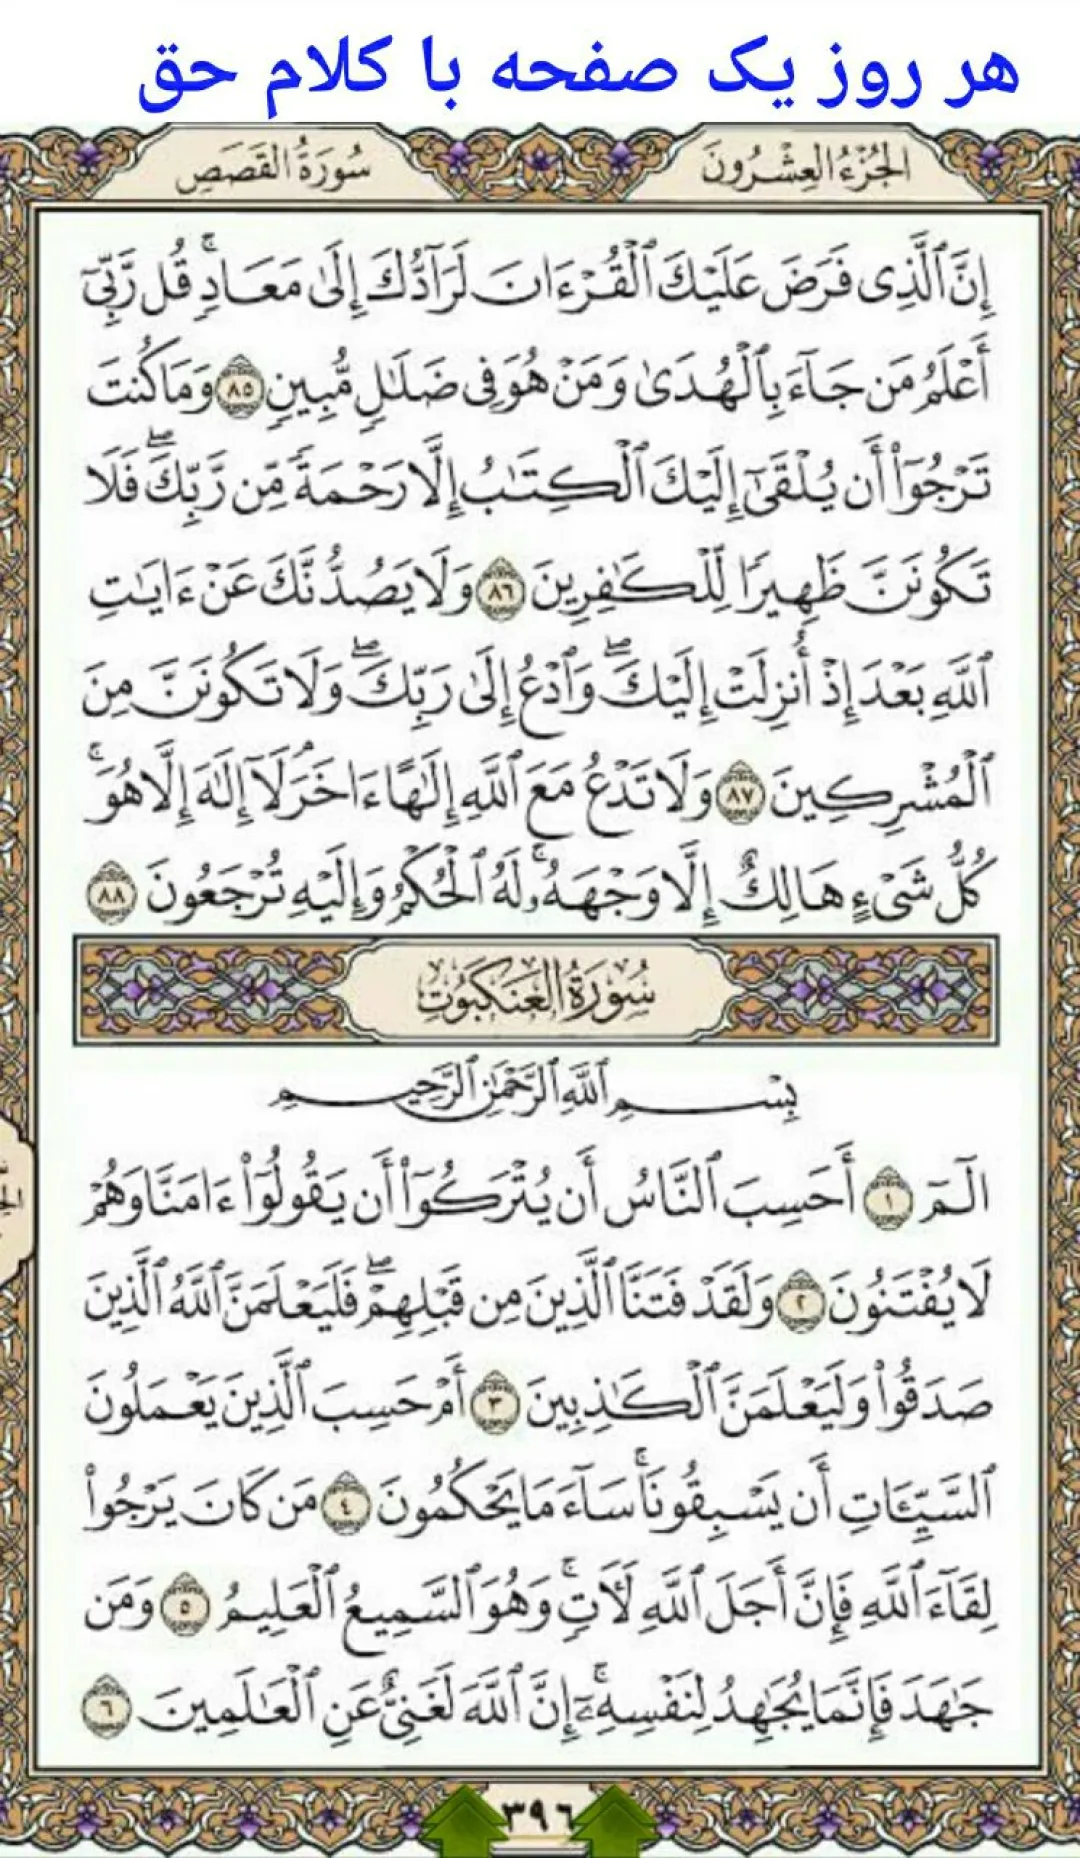 هر روز یک صفحه با کلام حق
الجُزْءُ العِشْرُونَ
سُورَةُ القَصَصِ
إِنَّ ٱلَّذِى فَرَضَ عَلَيْكَ ٱلْقُرْءَانَ لَرَآدُّكَ إِلَىٰ مَعَادٍۚ قُل رَّبِّىٓ
أَعْلَمُ مَن جَآءَ بِٱلْهُدَىٰ وَمَنْ هُوَ فِى ضَلَٰلٍ مُّبِينٍ ٨٥ وَمَا كُنتَ
تَرْجُوٓا۟ أَن يُلْقَىٰٓ إِلَيْكَ ٱلْكِتَٰبُ إِلَّا رَحْمَةً مِّن رَّبِّكَۖ فَلَا
تَكُونَنَّ ظَهِيرًا لِّلْكَٰفِرِينَ ٨٦ وَلَا يَصُدُّنَّكَ عَنْ ءَايَٰتِ
ٱللَّهِ بَعْدَ إِذْ أُنزِلَتْ إِلَيْكَۖ وَٱدْعُ إِلَىٰ رَبِّكَۖ وَلَا تَكُونَنَّ مِنَ
ٱلْمُشْرِكِينَ ٨٧ وَلَا تَدْعُ مَعَ ٱللَّهِ إِلَٰهًا ءَاخَرَۘ لَآ إِلَٰهَ إِلَّا هُوَۚ
كُلُّ شَىْءٍ هَالِكٌ إِلَّا وَجْهَهُۥۚ لَهُ ٱلْحُكْمُ وَإِلَيْهِ تُرْجَعُونَ ٨٨
سُورَةُ العَنكَبُوتِ
بِسْمِ ٱللَّهِ ٱلرَّحْمَٰنِ ٱلرَّحِيمِ
الٓمٓ ١ أَحَسِبَ ٱلنَّاسُ أَن يُتْرَكُوٓا۟ أَن يَقُولُوٓا۟ ءَامَنَّا وَهُمْ
لَا يُفْتَنُونَ ٢ وَلَقَدْ فَتَنَّا ٱلَّذِينَ مِن قَبْلِهِمْۖ فَلَيَعْلَمَنَّ ٱللَّهُ ٱلَّذِينَ
صَدَقُوا۟ وَلَيَعْلَمَنَّ ٱلْكَٰذِبِينَ ٣ أَمْ حَسِبَ ٱلَّذِينَ يَعْمَلُونَ
ٱلسَّيِّـَٔاتِ أَن يَسْبِقُونَاۚ سَآءَ مَا يَحْكُمُونَ ٤ مَن كَانَ يَرْجُوا۟
لِقَآءَ ٱللَّهِ فَإِنَّ أَجَلَ ٱللَّهِ لَـَٔاتٍۚ وَهُوَ ٱلسَّمِيعُ ٱلْعَلِيمُ ٥ وَمَن
جَٰهَدَ فَإِنَّمَا يُجَٰهِدُ لِنَفْسِهِۦٓۚ إِنَّ ٱللَّهَ لَغَنِىٌّ عَنِ ٱلْعَٰلَمِينَ ٦
٣٩٦